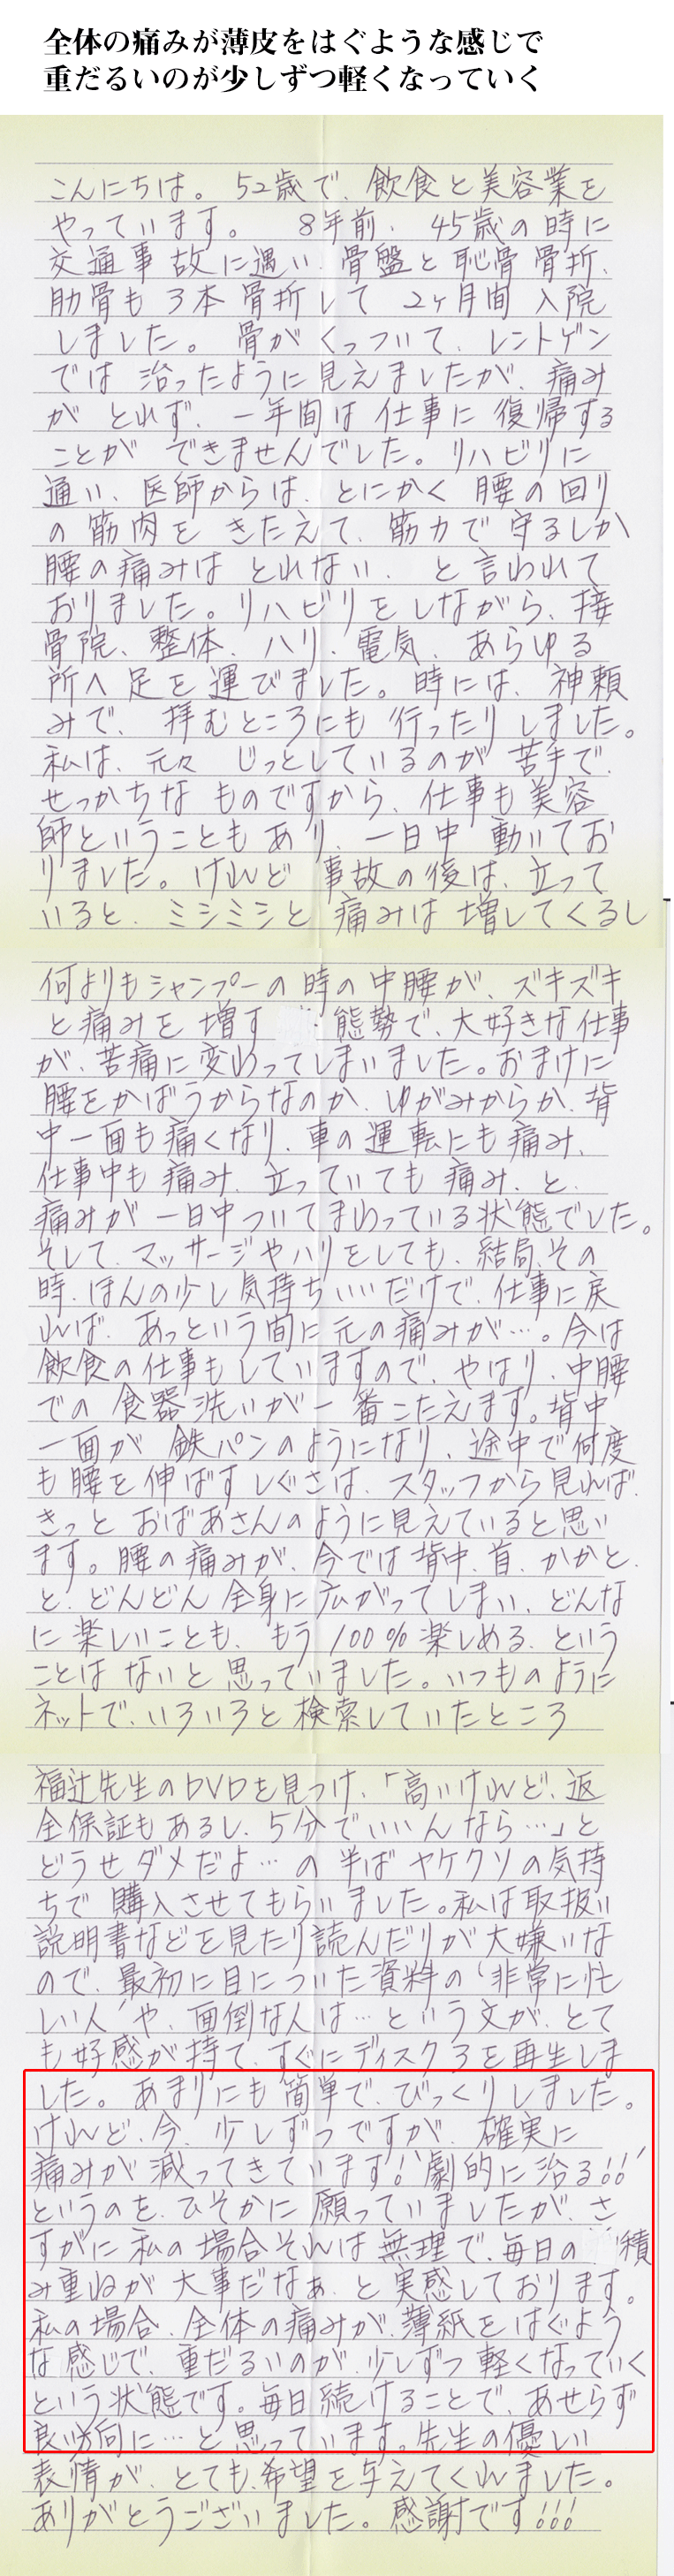 全体の痛みが薄皮をはぐような感じで
重だるいのが少しずつ軽くなっていく
こんにちは。52歳で、飲食と美容業を
やっています。 8年前、45歳の時に
交通事故に遇い、骨盤と恥骨骨折、
肋骨も3本骨折して2ヶ月間入院
しました。骨がくっついて、レントゲン
では治ったように見えましたが、痛み
がとれず、一年間は仕事に復帰する
ことができませんでした。リハビリに
通い、医師からは、とにかく腰の回り
の筋肉をきたえて、筋力で守るしか
腰の痛みはとれない、と言われて
おりました。リハビリをしながら、接
骨院、整体、ハリ、電気、あらゆる
所へ足を運びました。時には、神頼
みで、拝むところにも行ったりしました。
私は、元々じっとしているのが苦手で、
せっかちなものですから、仕事も美容
師ということもあり、一日中動いてお
りました。けれど事故の後は、立って
いると、ミシミシと痛みは増してくるし
何よりもシャンプーの時の中腰が、ズキズキ
と痛みを増す 態勢で、大好きな仕事
が、苦痛に変わってしまいました。おまけに
腰をかばうからなのか、ゆがみからか、背
中一面も痛くなり、車の運転にも痛み、
仕事中も痛み、立っていても痛み、と、
痛みが一日中ついてまわっている状態でした。
そして、マッサージやハリをしても、結局、その
時、ほんの少し気持ちいいだけで、仕事に戻
れば、あっという間に元の痛みが…。今は
飲食の仕事もしていますので、やはり、中腰
での食器洗いが一番こたえます。背中
一面が鉄パンのようになり、途中で何度
も腰を伸ばすしぐさは、スタッフから見れば、
きっとおばあさんのように見えていると思い
ます。腰の痛みが、今では背中、首、かかと、
と、どんどん全身に広がってしまい、どんな
に楽しいことも、もう100%楽しめる、という
ことはないと思っていました。いつものように
ネットで、いろいろと検索していたところ
福辻先生のDVDを見つけ、「高いけれど、返
金保証もあるし、5分でいいんなら…」と
どうせダメだよ…の半ばヤケクソの気持
ちで購入させてもらいました。私は取扱い
説明書などを見たり読んだりが大嫌いな
ので、最初に目についた資料の'非常に忙
しい人'や、面倒な人は…という文が、とて
も好感が持て、すぐにディスク3を再生しま
した。あまりにも簡単で、びっくりしました。
けれど、今、少しずつですが、確実に
痛みが減ってきています!'劇的に治る!!'
というのを、ひそかに願っていましたが、さ
すがに私の場合それは無理で、毎日の 積
み重ねが大事だなぁ、と実感しております。
私の場合、全体の痛みが、薄紙をはぐよう
な感じで、重だるいのが、少しずつ軽くなっていく
という状態です。毎日続けることで、あせらず
良い方向に…と思っています。先生の優しい
表情が、とても、希望を与えてくれました。
ありがとうございました。感謝です!!!